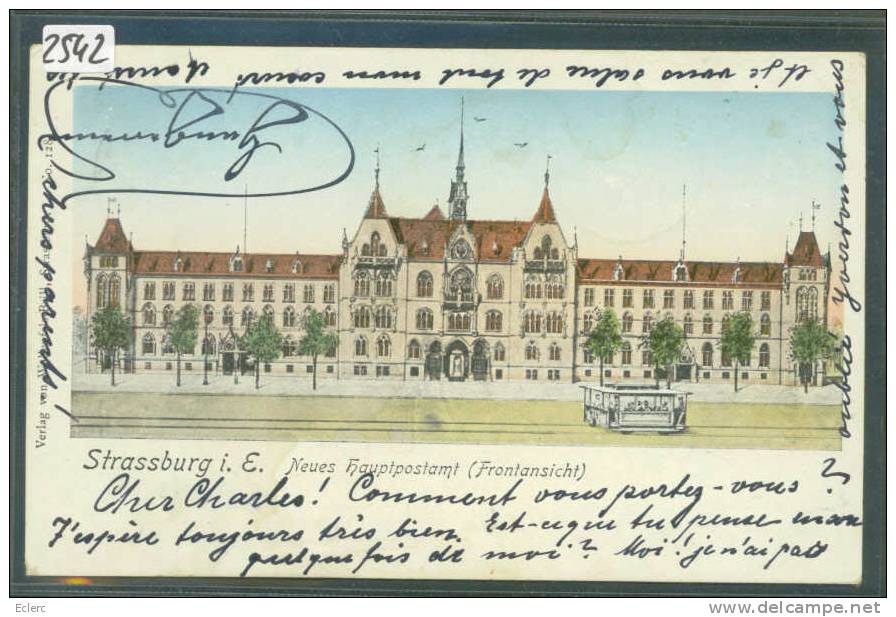 2542
Strassburg i. E. Neues Hauptpostamt (Frontansicht)
Cher Charles! Comment vous portez-vous?
J'espère toujours très bien. Est-ce que tu pense encore
quelque fois de moi? Moi! je n'ai pas
oublié Yverdon et vous
et je vous salue de tout mon coeur,
chers parents!
Verlag von
Eclerc
www.delcampe.net